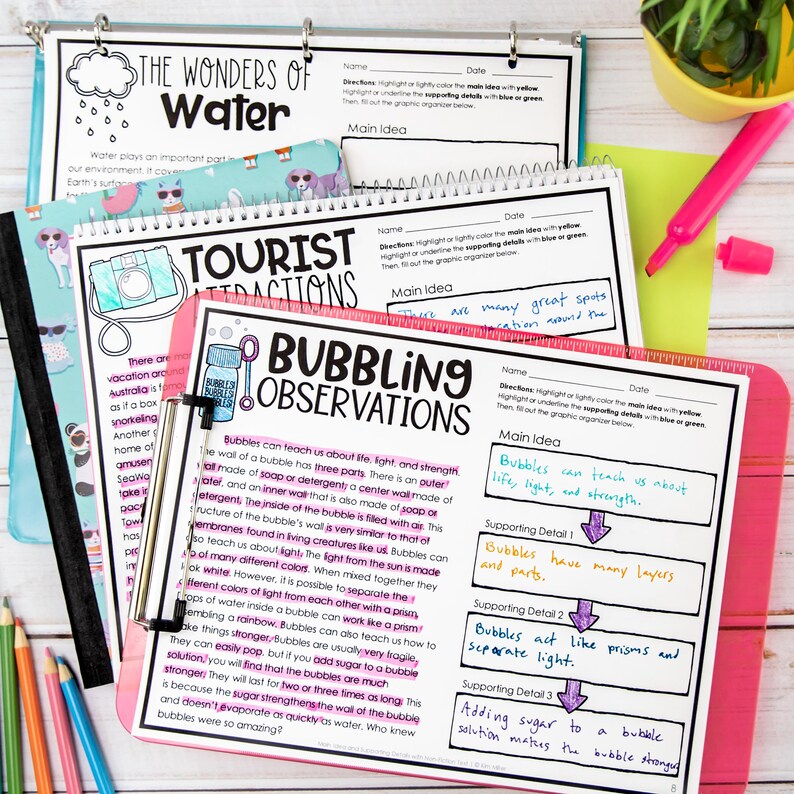 THE WONDERS OF
Water
Name Date
Directions: Highlight or lightly color the main idea with yellow.
Highlight or underline the supporting details with blue or green.
Then, fill out the graphic organizer below.
Main Idea
Water plays an important part in
our environment. It cover
Earth's surface
TOURIST
ATTRACTIONS
Name Date
Directions: Highlight or lightly color the main idea with yellow.
Highlight or underline the supporting details with blue or green.
Then, fill out the graphic organizer below.
Main Idea
There are many great spots
vacation around the
There are ma
vacation around
Australia is famou
as if a box
snorkeling
Another g
home of
amusem
SeaWo
take in
BUBBLES!
BUBBLES!
BUBBLES!
BUBBLING
OBSERVATIONS
Name Date
Directions: Highlight or lightly color the main idea with yellow.
Highlight or underline the supporting details with blue or green.
Then, fill out the graphic organizer below.
Bubbles can teach us about life, light, and strength.
The wall of a bubble has three parts. There is an outer
wall made of soap or detergent, a center wall made of
water, and an inner wall that is also made of soap or
detergent. The inside of the bubble is filled with air. This
structure of the bubble's wall is very similar to that of
membranes found in living creatures like us. Bubbles can
also teach us about light. The light from the sun is made
up of many different colors. When mixed together they
look white. However, it is possible to separate the
different colors of light from each other with a prism.
Drops of water inside a bubble can work like a prism
resembling a rainbow. Bubbles can also teach us how to
make things stronger. Bubbles are usually very fragile.
They can easily pop, but if you add sugar to a bubble
solution, you will find that the bubbles are much
stronger. They will last for two or three times as long. This
is because the sugar strengthens the wall of the bubble
and doesn't evaporate as quickly as water. Who knew
bubbles were so amazing?
Main Idea
Bubbles can teach us about
life, light, and strength.
Supporting Detail 1
Bubbles have many layers
and parts.
Supporting Detail 2
Bubbles act like prisms and
separate light.
Supporting Detail 3
Adding sugar to a bubble
solution makes the bubble stronger
Main Idea and Supporting Details with Non-Fiction Text
8